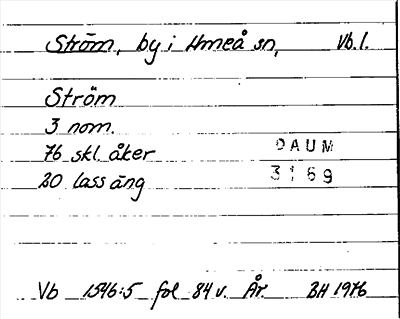 Ström, by i Umeå sn, Vb.l.
Ström
3 nom.
76 skl. åker DAUM
20 lass äng 3169
Vb 1546:5 fol 84 v. År. BH 1976